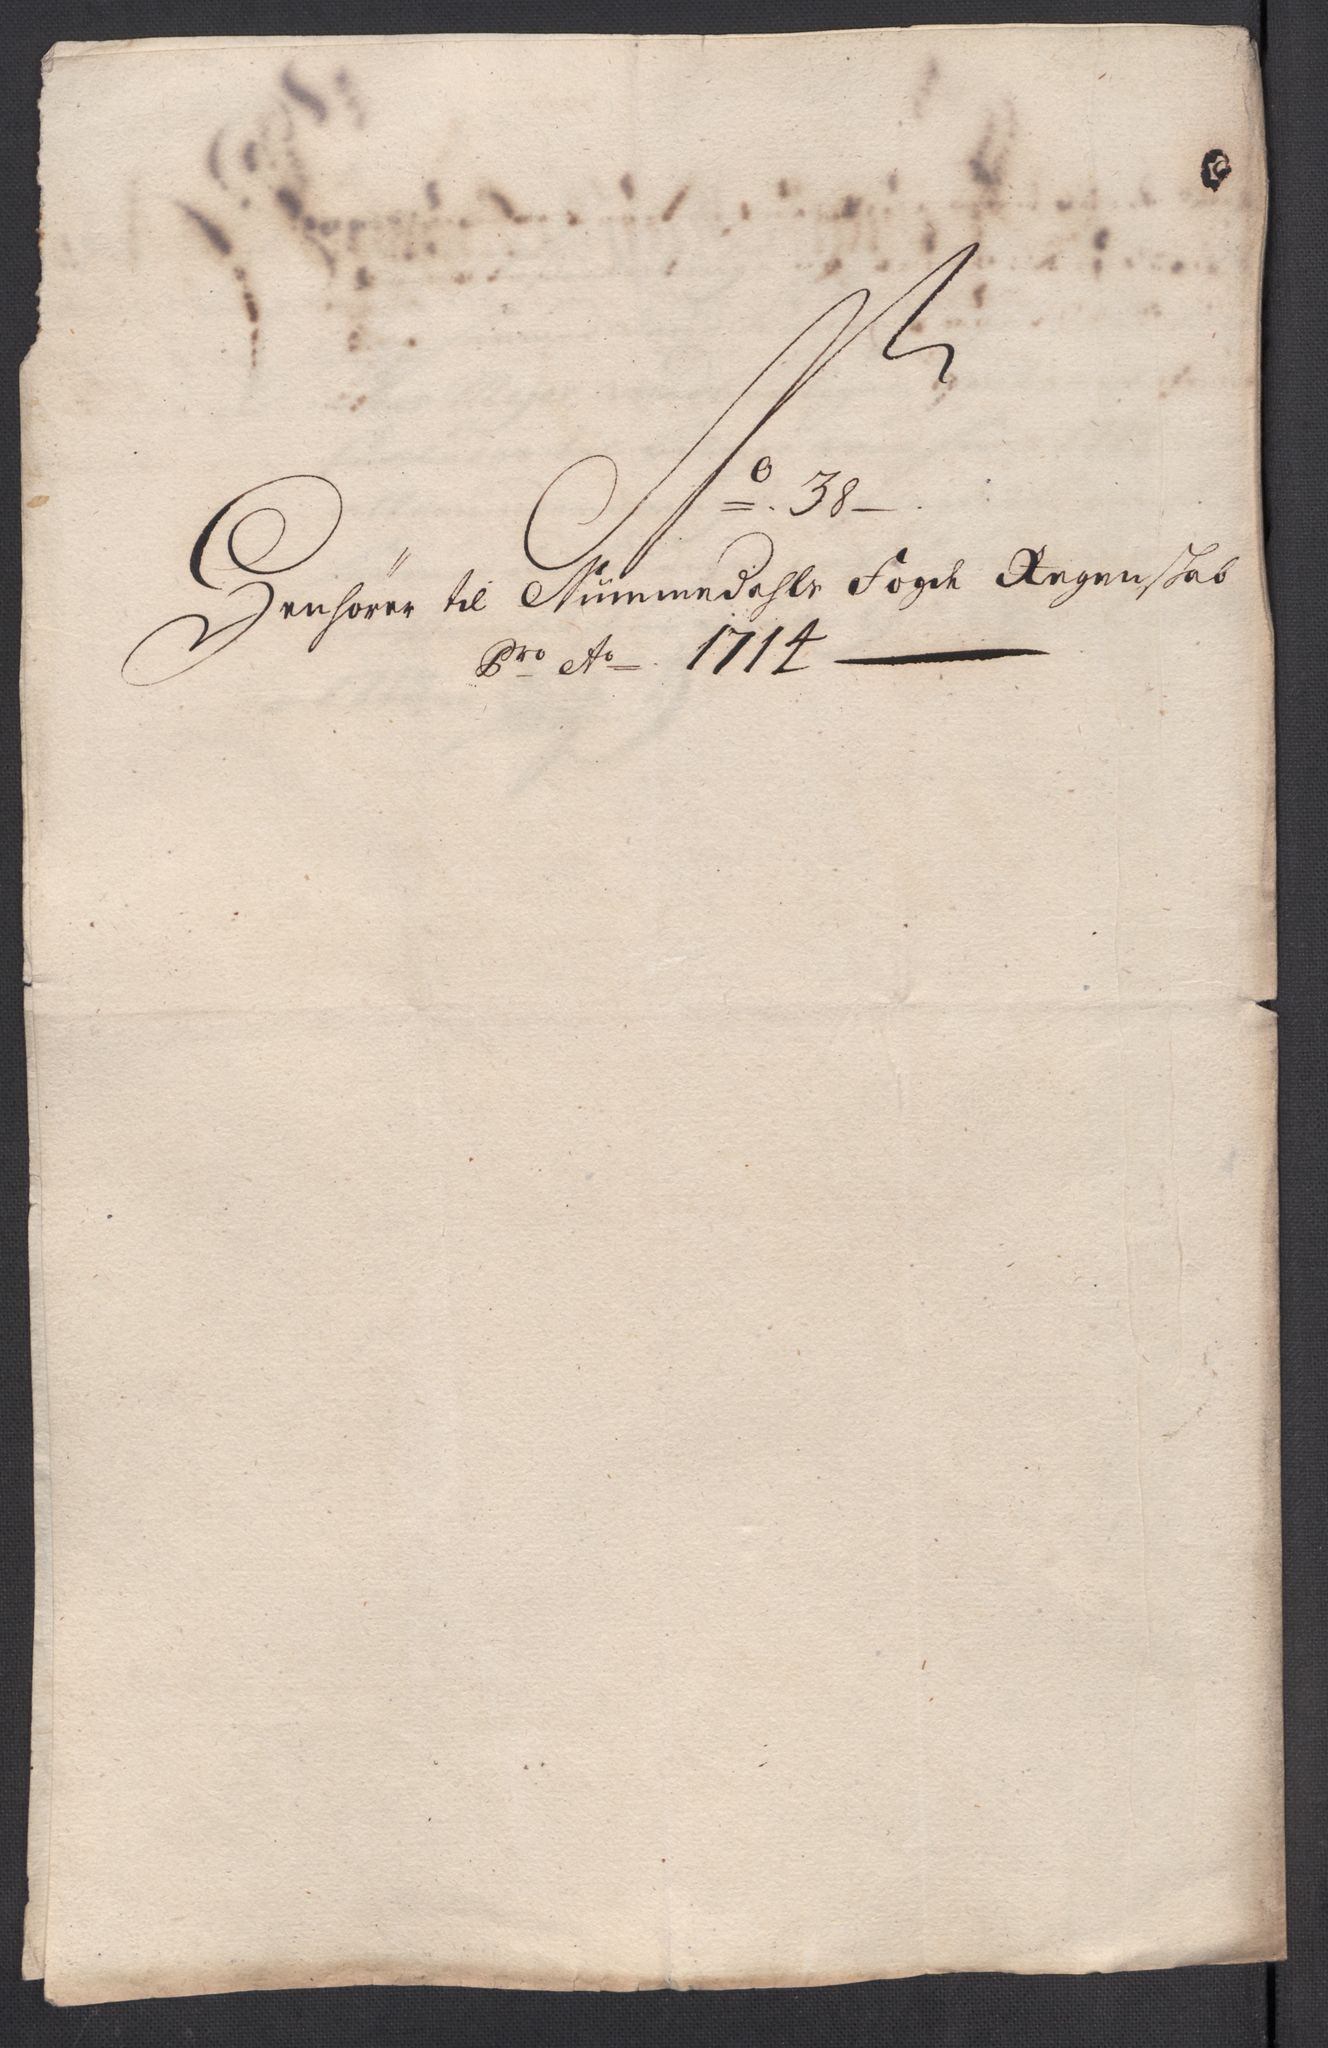 No. 38
Henhörer til Nummedahls Fogde Regenskab
Pro Ao. 1714